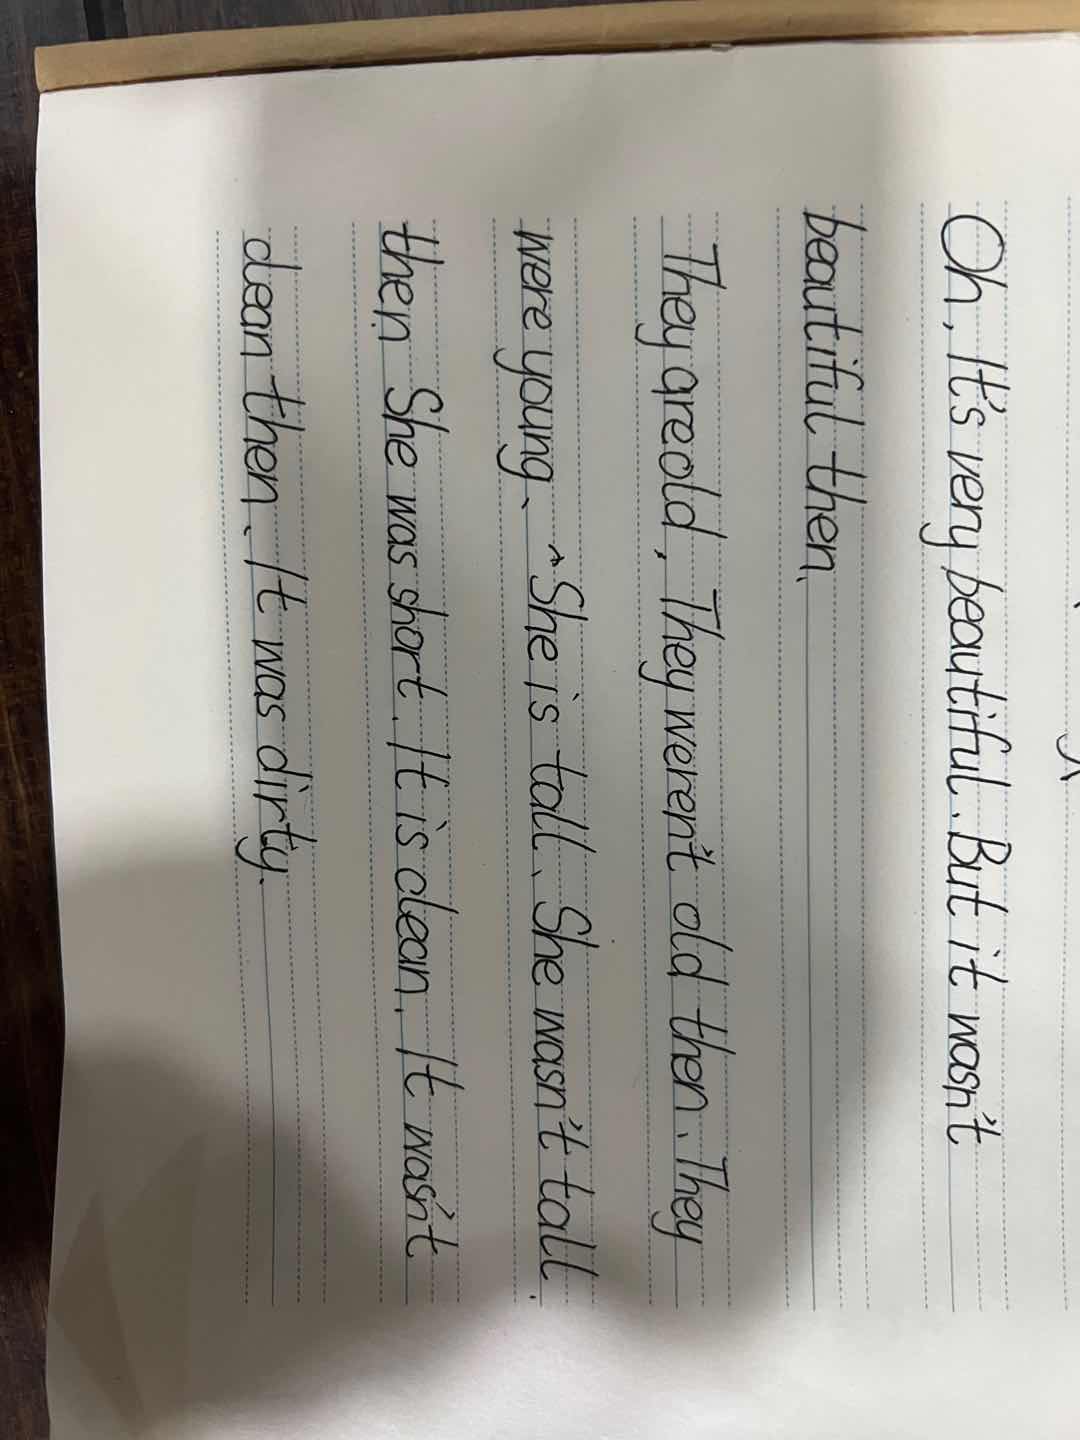 Oh, It's very beautiful. But it wasn't
beautiful then.
They are old, They weren't old then. They
were young. She is tall. She wasn't tall.
then She was short. It is clean. It wasn't
clean then. It was dirty.